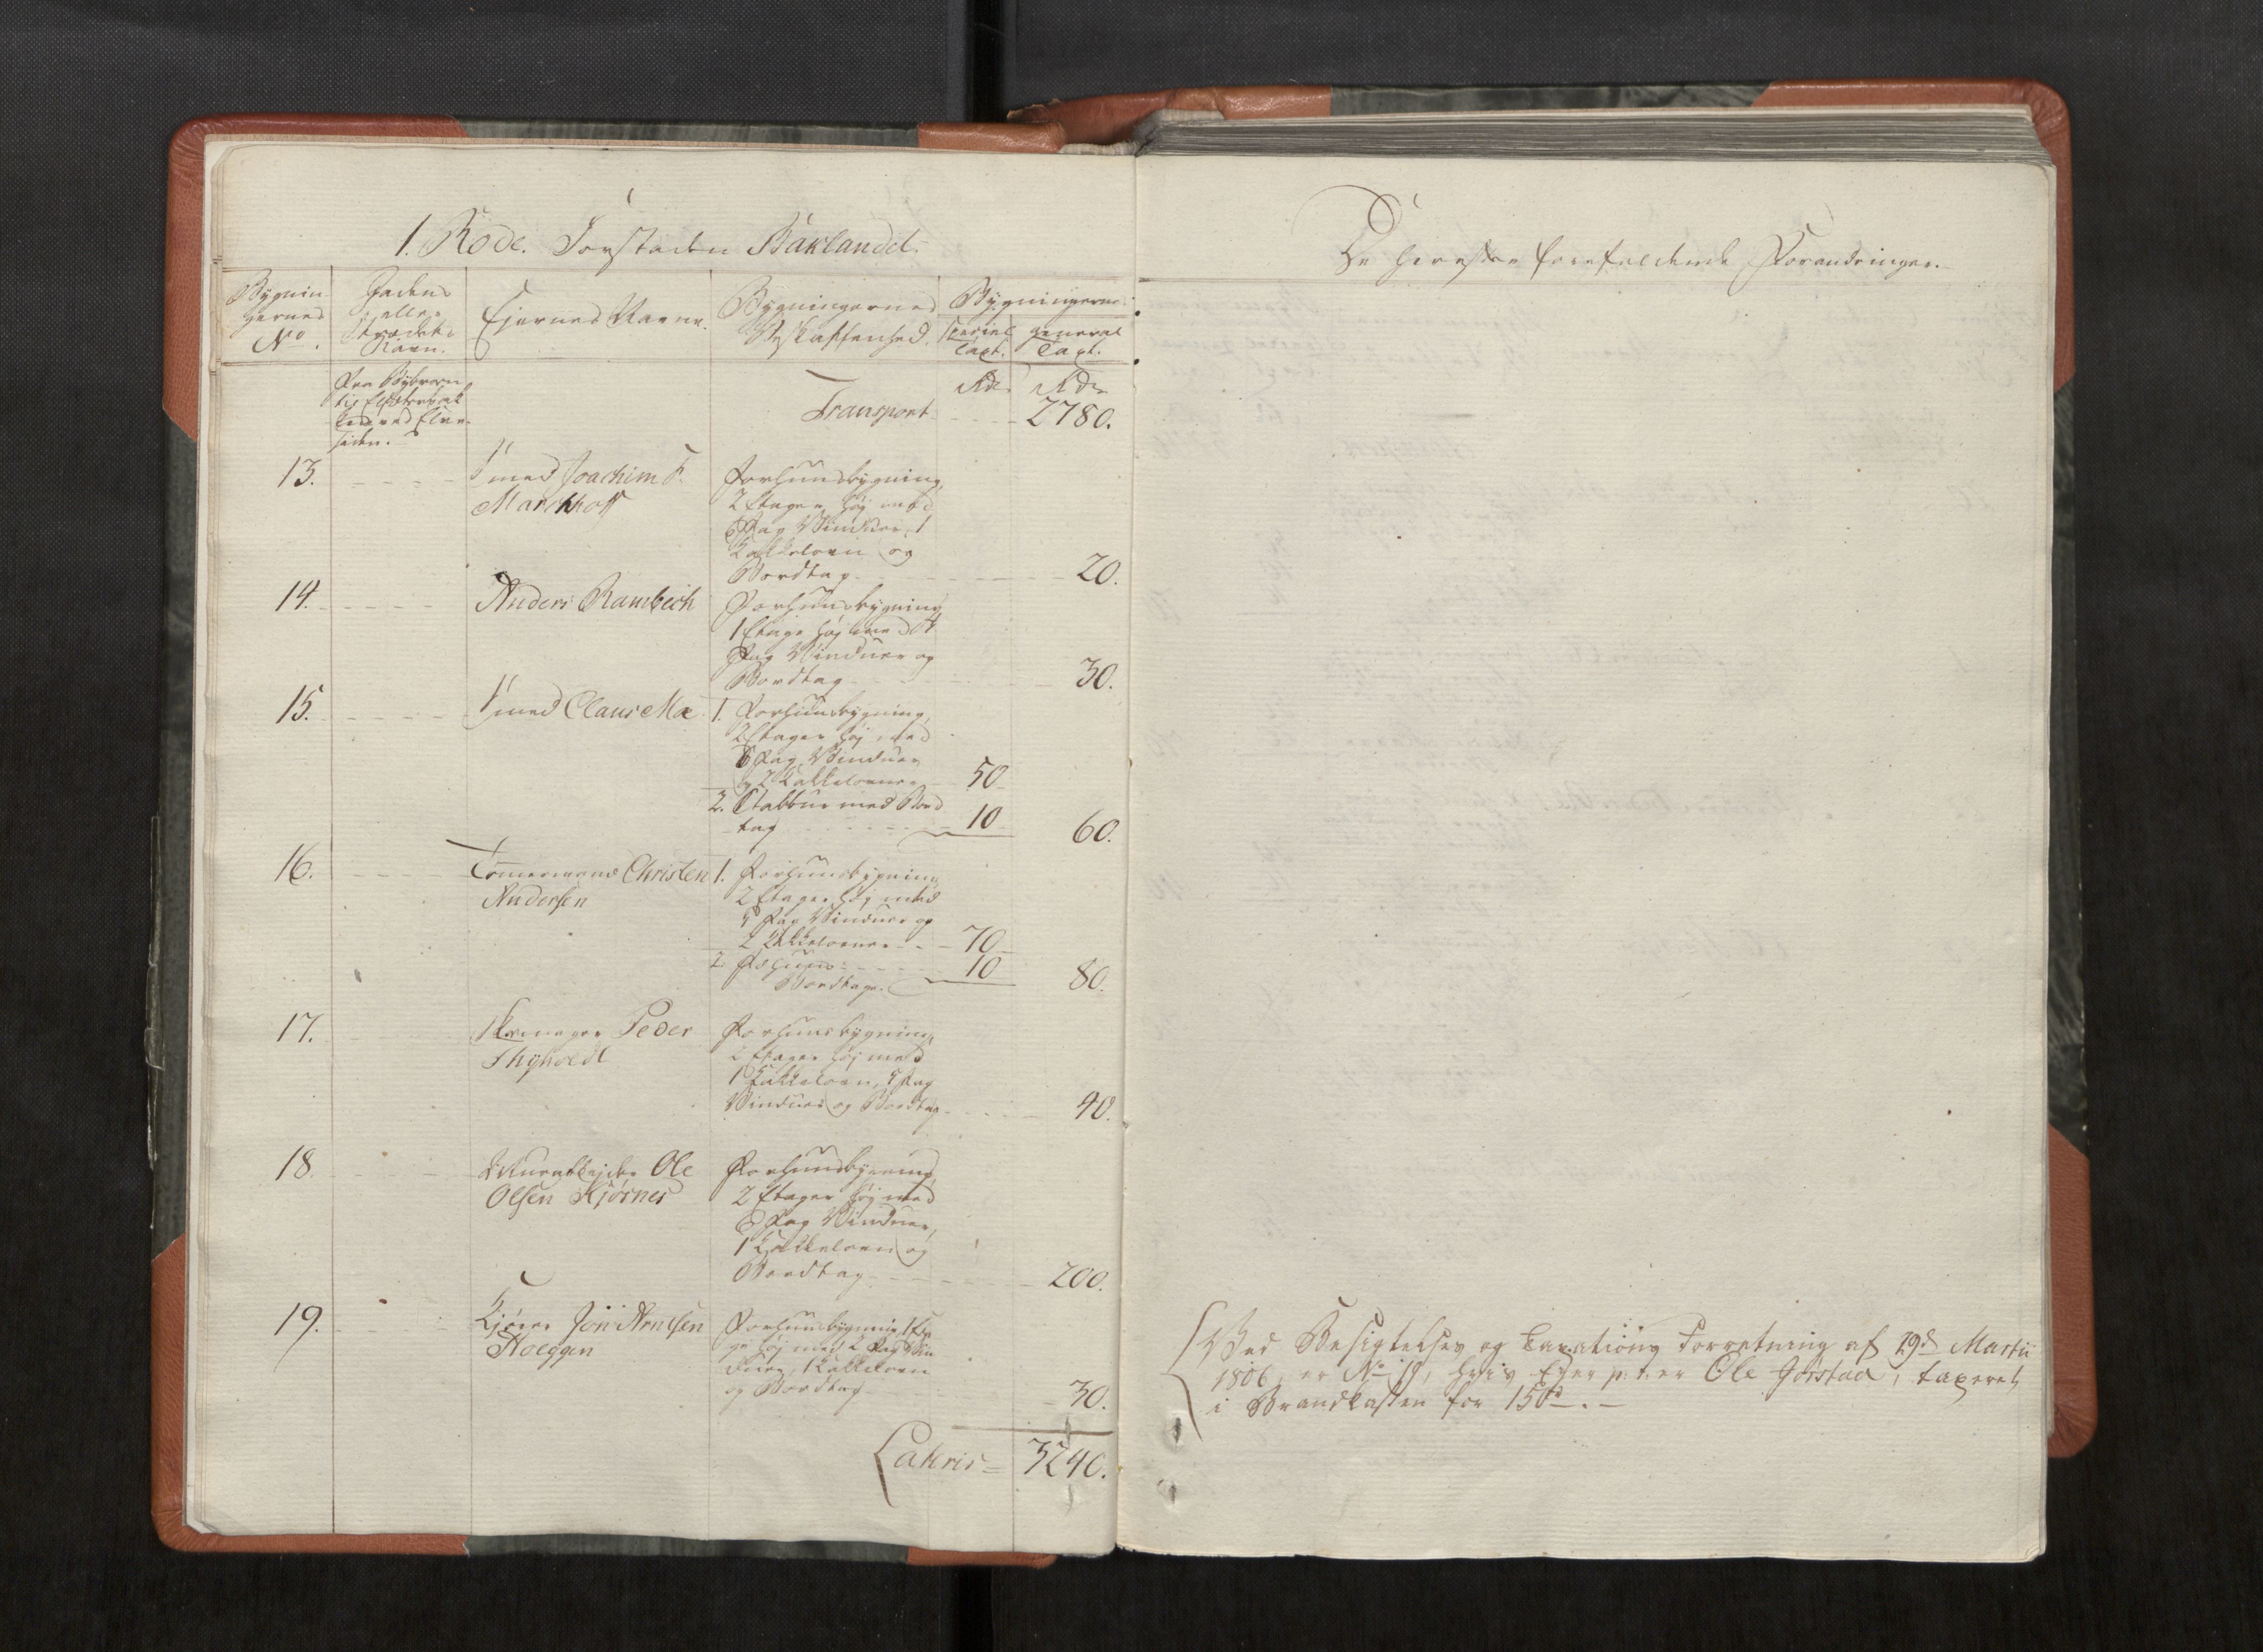 1. Rode. Forstaden Baklandet.
Bygnin-
gernes
No.
Gadens
eller
Strædets
Navn.
Ejernes Navne.
Bygningernes
Beskaffenhed.
Bygningernes
speciel
Taxt.
general
Taxt.
Fra Bybroen
til
ved Elve-
siden.
Rdr
Rdr
Transport 2780.
13.
Smed Joachim F.
Marckhoff
Forhuusbygning,
2 Etager høj med
6 Fag Vinduer, 1
Kakkelovn og
Bordtag 20.
14.
Anders Rambech
Forhuusbygning
1 Etage høj med 4
Fag Vinduer og
Bordtag 30.
15.
Smed Claus Moe
1. Forhuusbygning,
2 Etager høj med
6 Fag Vinduer
og 2 Kakkelovne 50
2. Stabbur med Bord
tag 10 60.
16.
Tømermand Christen
Andersen
1. Forhuusbygning
2 Etager høj med
5 Fag Vinduer og
2 Kakkelovne 70
2. Fæhuus 10 80.
Bordtage.
17.
Peder
Thyholdt
Forhuusbygning,
2 Etager høj med
1 Kakkelovn, 5 Fag
Vinduer og Bordtag 40.
18.
Ole
Olsen Kjøsnes
Forhuusbygning
2 Etager høj med
6 Fag Vinduer,
1 Kakkelovn og
Bordtag 200.
19.
Kjører Jon Arntsen
Hoeggen
Forhuusbygning, 1 Eta
ge høj med 2 Fag Vin
duer, 1 Kakkelovn
og Bordtag
30.
Lateris 3240.
De herefter forefaldende Forandringer.
Ved Besigtelses og Taxations Forretning af 29d Martii
1806, er No 19, hvis Ejer p. t. er Ole Gjørstad, taxeret
i Brandkassen for 150rd.